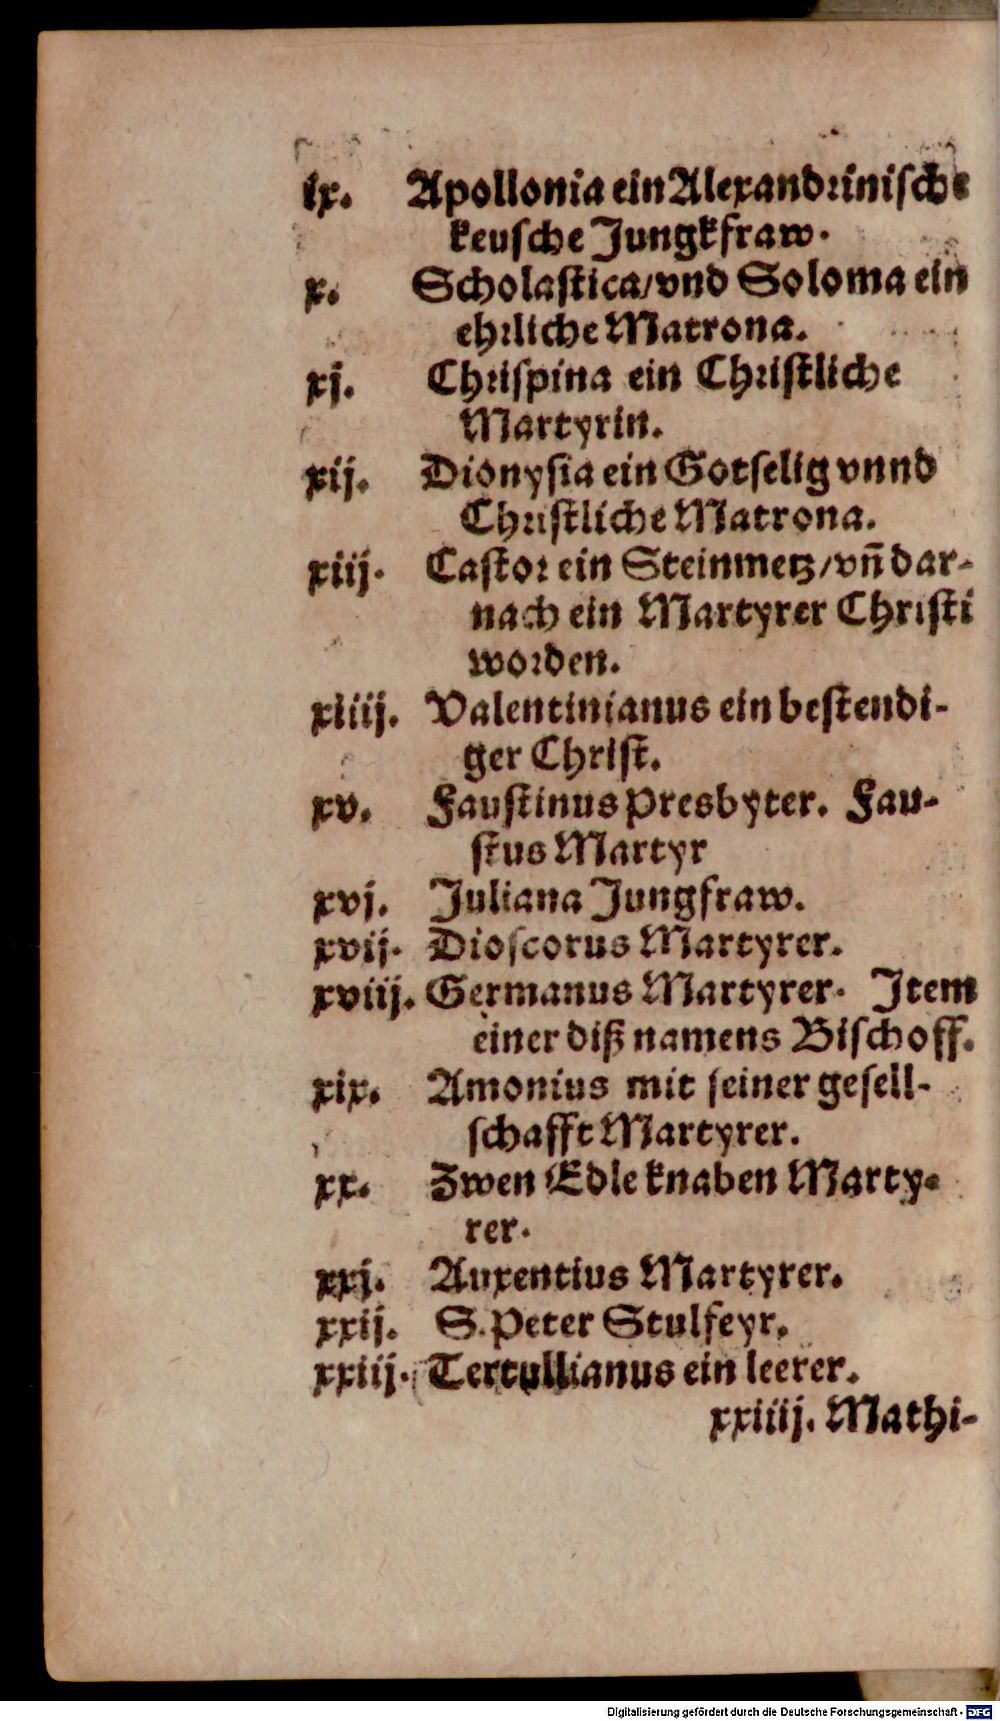 ix. Apollonia ein Alexandrinische
keusche Jungkfraw.
x. Scholastica/vnd Soloma ein
ehrliche Matrona.
xj. Chrispina ein Christliche
Martyrin.
xij. Dionysia ein Gotselig vnnd
Christliche Matrona.
xiij. Castor ein Steinmetz/vn̄ dar-
nach ein Martyrer Christi
worden.
xiiij. Valentinianus ein bestendi-
ger Christ.
xv. Faustinus Presbyter. Fau-
stus Martyr
xvj. Juliana Jungfraw.
xvij. Dioscorus Martyrer.
xviij. Germanus Martyrer. Item
einer diß namens Bischoff.
xix. Amonius mit seiner gesell-
schafft Martyrer.
xx. Zwen Edle knaben Marty-
rer.
xxj. Auxentius Martyrer.
xxij. S. Peter Stulfeyr.
xxiij. Tertullianus ein leerer.
xxiiij. Mathi-
Digitalisierung gefördert durch die Deutsche Forschungsgemeinschaft - DFG